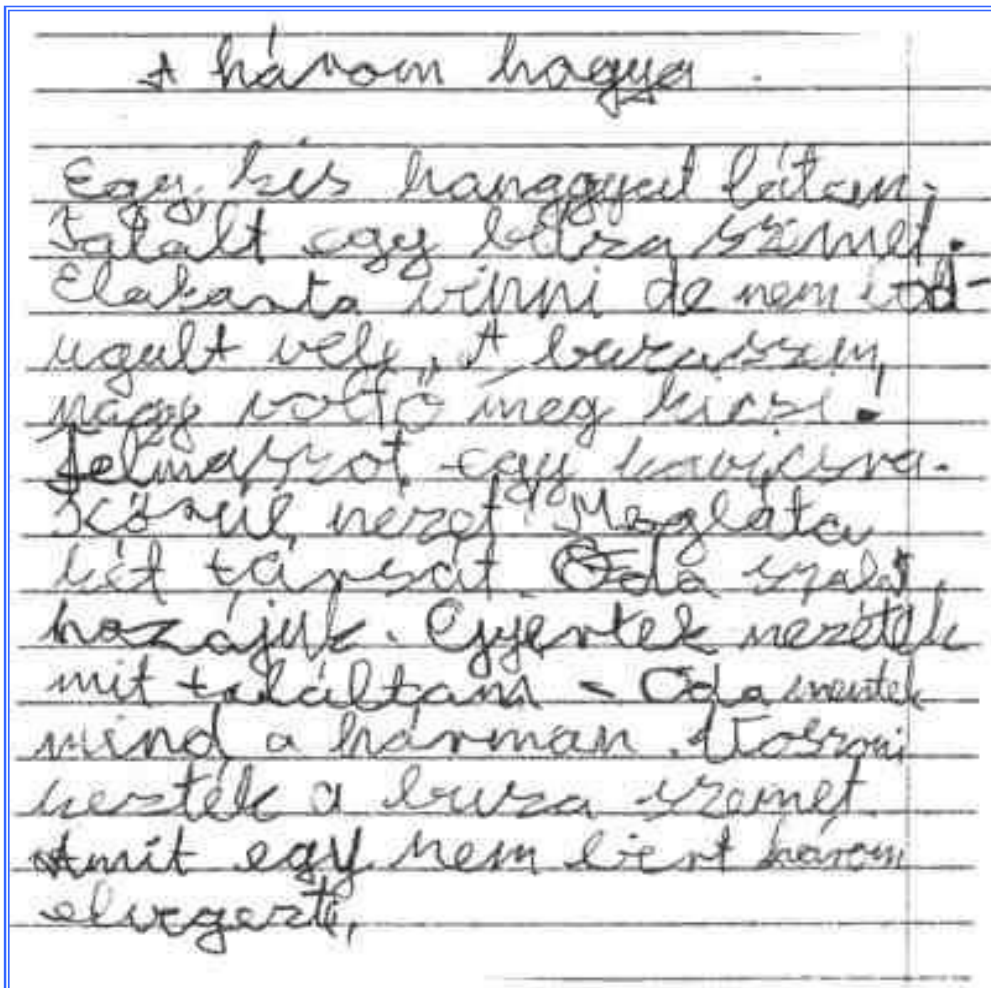 A három hagya.
Egy kis hanggyat látam.
Talált egy búza szemet.
Elakarta vinni de nem
ugult vele. A buzaszem
nagy volt ő meg kicsi.
Felmászot egy kavicsra.
Körül nezet Megláta
két társát. Oda szalat
hozájuk. Gyertek nezétek
mit találtam - Oda mentek
mind a hárman. Voszoni
kezték a buza szemet
Amit egy nem birt három
elvegezte,